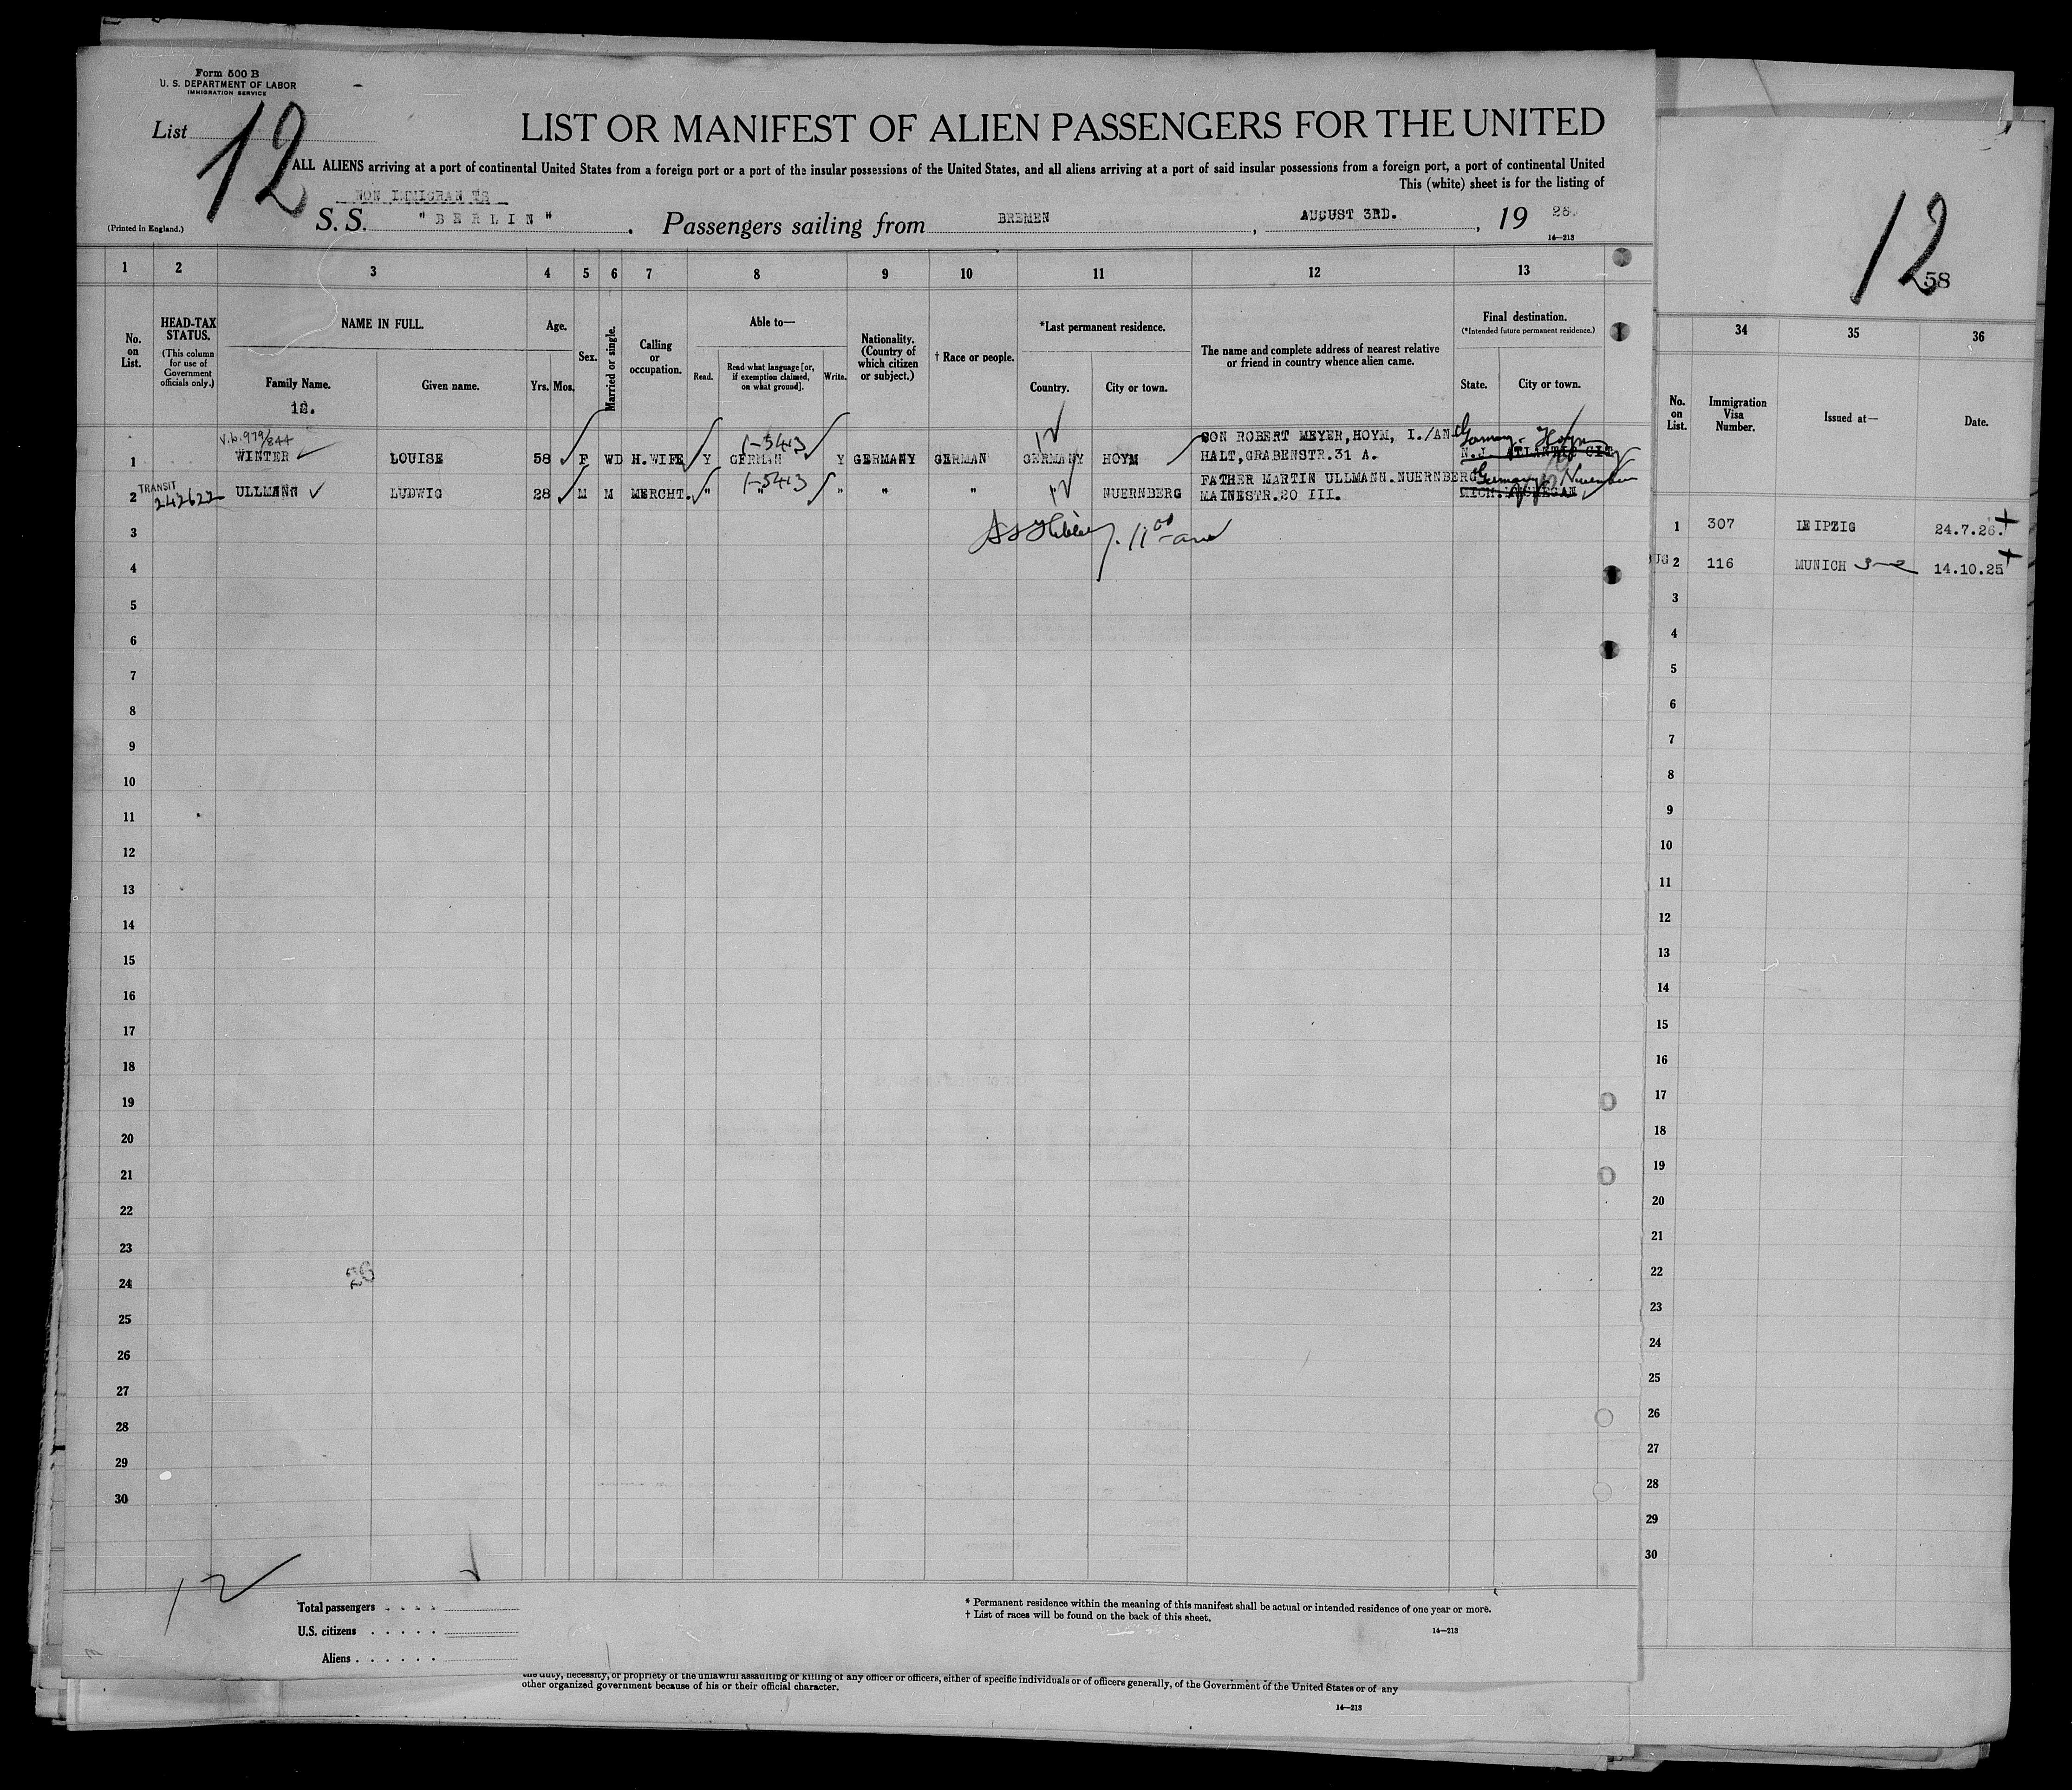 Form 500 B
U. S. DEPARTMENT OF LABOR
IMMIGRATION SERVICE
List 12
LIST OR MANIFEST OF ALIEN PASSENGERS FOR THE UNITED
ALL ALIENS arriving at a port of continental United States from a foreign port or a port of the insular possessions of the United States, and all aliens arriving at a port of said insular possessions from a foreign port, a port of continental United
This (white) sheet is for the listing of
NON IMMIGRANTS
(Printed in England.)
S. S. "BERLIN". Passengers sailing from BREMEN, AUGUST 3RD., 19 26.
14—213
1 2 3 4 5 6 7 8 9 10 11 12 13
No. on List.
HEAD-TAX STATUS.
(This column for use of Government officials only.)
NAME IN FULL.
Family Name.
Given name.
12.
Age.
Yrs. Mos.
Sex.
Married or single.
Calling or occupation.
Able to—
Read.
Read what language [or, if exemption claimed, on what ground].
Write.
Nationality. (Country of which citizen or subject.)
† Race or people.
*Last permanent residence.
Country.
City or town.
The name and complete address of nearest relative or friend in country whence alien came.
Final destination.
(*Intended future permanent residence.)
State.
City or town.
V.b. 979/844
1 WINTER LOUISE 58 F WD H.WIFE Y GERMAN Y GERMANY GERMAN GERMANY HOYM SON ROBERT MEYER,HOYM, I./AN HALT,GRABENSTR.31 A. Germany - Hoym N.J. ATLANTIC CIT
TRANSIT
242622
2 ULLMANN LUDWIG 28 M M MERCHT. " " " " " " NUERNBERG FATHER MARTIN ULLMANN.NUERNBERG MAINESTR.20 III. Germany MICH. MICHEGAN
3
4
5
6
7
8
9
10
11
12
13
14
15
16
17
18
19
20
21
22
23
24
25
26
27
28
29
30
26
12
Total passengers . . . .
U.S. citizens . . . . .
Aliens . . . . . .
* Permanent residence within the meaning of this manifest shall be actual or intended residence of one year or more.
† List of races will be found on the back of this sheet.
14—213
the duty, necessity, or propriety of the unlawful assaulting or killing of any officer or officers, either of specific individuals or of officers generally, of the Government of the United States or of any
other organized government because of his or their official character.
14—213
12
58
34 35 36
No. on List.
Immigration Visa Number.
Issued at—
Date.
1 307 LEIPZIG 24.7.26.
2 116 MUNICH 14.10.25
3
4
5
6
7
8
9
10
11
12
13
14
15
16
17
18
19
20
21
22
23
24
25
26
27
28
29
30